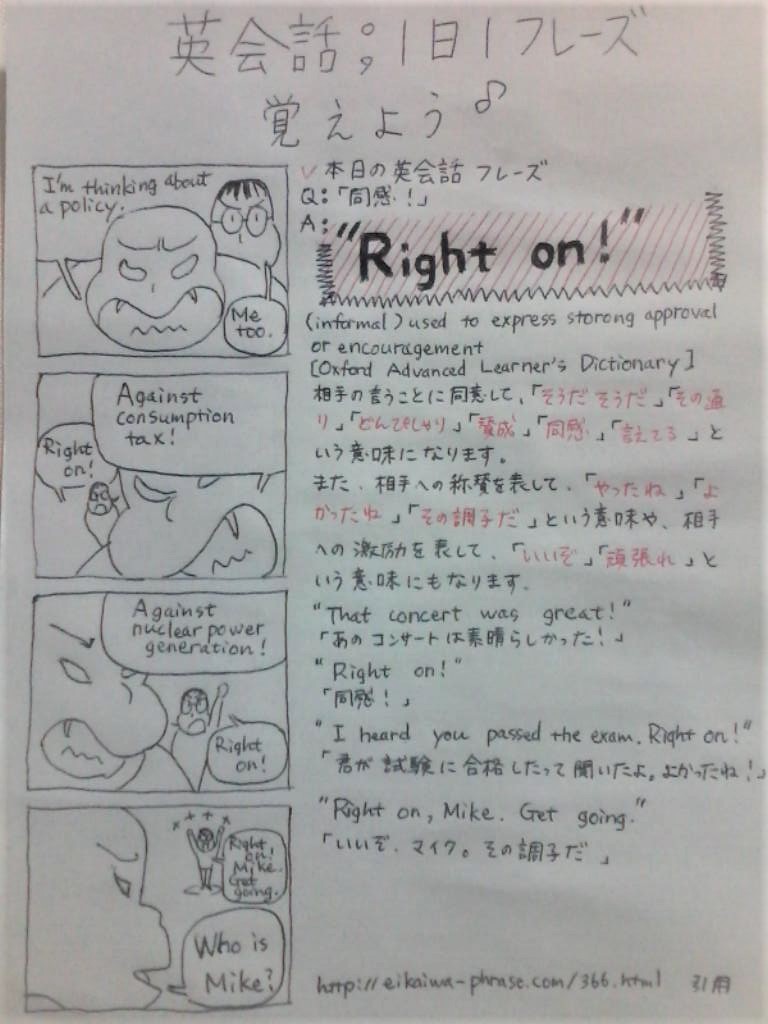 英会話；1日1フレーズ
覚えよう♪
I'm thinking about
a policy.
Me
too.
Against
consumption
tax!
Right
on!
Against
nuclear power
generation!
Right
on!
Right
on,
Mike.
Get
going.
Who is
Mike?
✓本日の英会話フレーズ
Q:「同感!」
A:
"Right on!"
(informal) used to express storong approval
or encouragement
[Oxford Advanced Learner's Dictionary]
相手の言うことに同意して、「そうだそうだ」「その通
り」「どんぴしゃり」「賛成」「同感」「言えてる」と
いう意味になります。
また、相手への称賛を表して、「やったね」「よ
かったね」「その調子だ」という意味や、相手
への激励を表して、「いいぞ」「頑張れ」と
いう意味にもなります。
"That concert was great!"
「あのコンサートは素晴らしかった!」
"Right on!"
「同感!」
"I heard you passed the exam. Right on!"
「君が試験に合格したって聞いたよ。よかったね!」
"Right on, Mike. Get going."
「いいぞ、マイク。その調子だ」
http://eikaiwa-phrase.com/366.html 引用